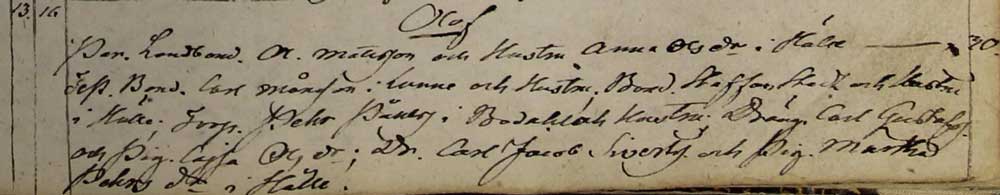 13. 16 Olof
Par. Landbond. A. Matsson och Hustru Anna Ols dr i Hälle — 30.
Test. Bond. Carl Månsson i Lunne och Hustru, Bond. Staffan och Hustru
i Hälle; Torp. Pehr i och Hustru; Dräng. Carl Gustafss.
och Pig. Cajsa Ols dr; Dr. Carl Jacob Siverts och Pig. Martha
Pehrs dr i Hälle.